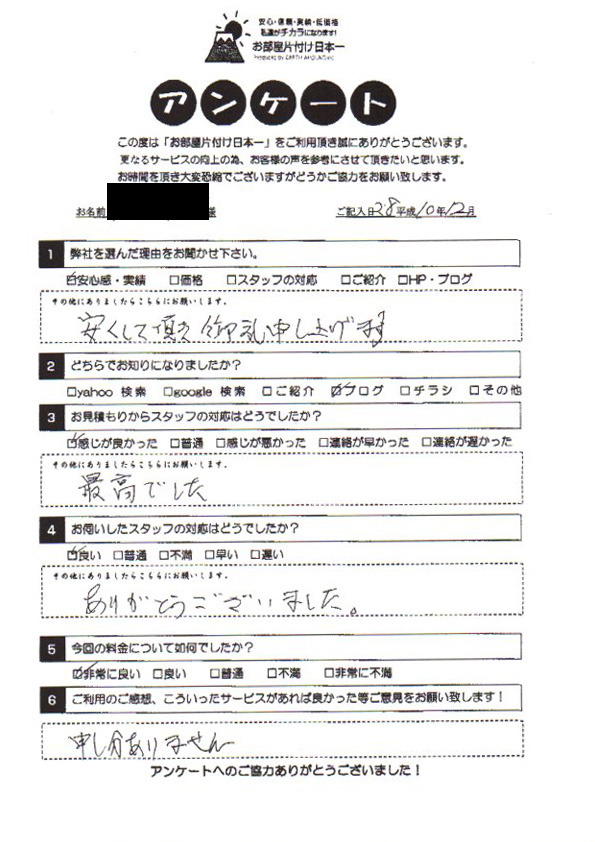 安心・信頼・実績・低価格
私達がチカラになります!
お部屋片付け日本一
PRODUCED BY EARTH MOUNTAIN
アンケート
この度は「お部屋片付け日本一」をご利用頂き誠にありがとうございます。
更なるサービスの向上の為、お客様の声を参考にさせて頂きたいと思います。
お時間を頂き大変恐縮でございますがどうかご協力をお願い致します。
お名前 様 ご記入日 28 平成10年12月
1 弊社を選んだ理由をお聞かせ下さい。
☑安心感・実績 □価格 □スタッフの対応 □ご紹介 □HP・ブログ
その他にありましたらこちらにお願いします。
安くして頂き御礼申し上げます
2 どちらでお知りになりましたか?
□yahoo 検索 □google 検索 □ご紹介 ☑ブログ □チラシ □その他
3 お見積もりからスタッフの対応はどうでしたか?
☑感じが良かった □普通 □感じが悪かった □連絡が早かった □連絡が遅かった
その他にありましたらこちらにお願いします。
最高でした
4 お伺いしたスタッフの対応はどうでしたか?
☑良い □普通 □不満 □早い □遅い
その他にありましたらこちらにお願いします。
ありがとうございました。
5 今回の料金について如何でしたか?
☑非常に良い □良い □普通 □不満 □非常に不満
6 ご利用のご感想、こういったサービスがあれば良かった等ご意見をお願い致します!
申し分ありません
アンケートへのご協力ありがとうございました!